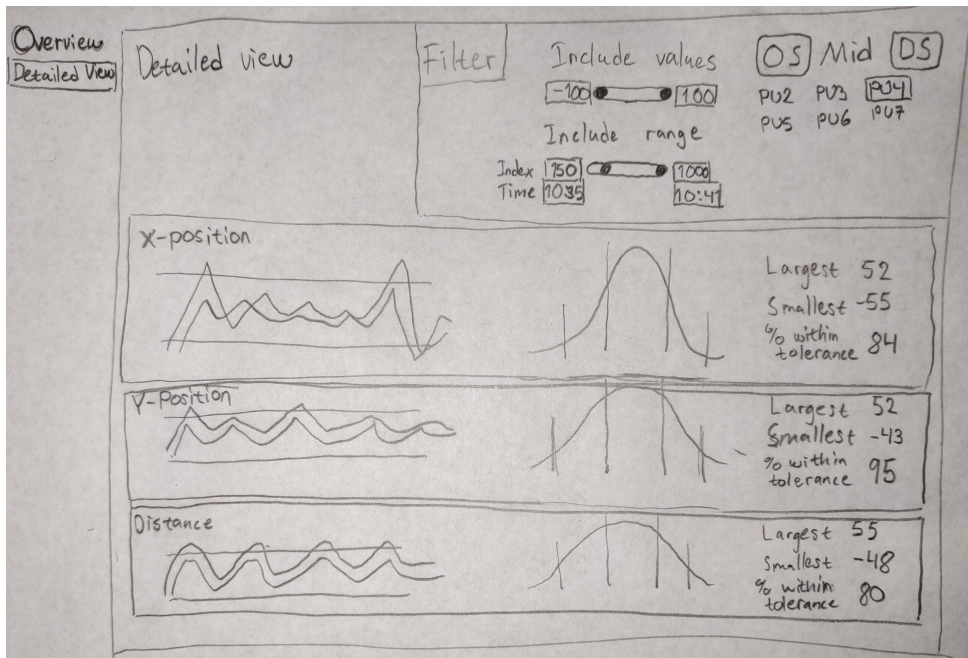 Overview
Detailed View
Detailed view
Filter
Include values
-100 100
Include range
Index 150 1000
Time 10:35 10:41
OS Mid DS
PU2 PU3 PU4
PU5 PU6 PU7
X-position
Largest 52
Smallest -55
% within
tolerance 84
Y-Position
Largest 52
Smallest -43
% within
tolerance 95
Distance
Largest 55
Smallest -48
% within
tolerance 80